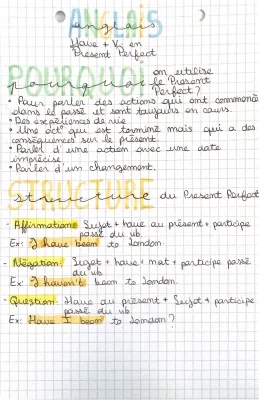 ANGLAIS
anglais
Have + V. en
Present Perfect
POURQUOI
pourquoi on utilise
le Present
Perfect ?
• Pour parler des actions qui ont commencé
dans le passé et sont toujours en cours.
• Des expériences de vie
• Une act° qui est terminée mais qui a des
conséquences sur le présent.
• Parler d'une action avec une date
imprécise.
• Parler d'un changement.
STRUCTURE
structure du Present Perfect
- Affirmation: Sujet + have au présent + participe
passé du vb.
Ex: I have been to London.
- Négation: Sujet + have + not + participe passé
du vb.
Ex: I haven't been to London.
- Question: Have au présent + Sujet + participe
passé du vb.
Ex: Have I been to London ?